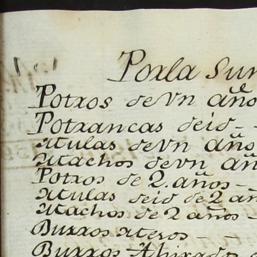 Por la Sum
Potros de Vn año
Potrancas seis
Mulas de Vn año
Machos de vn añ
Potros de 2. años
Mulas seis de 2 añ
Machos de 2 años
Burros Hteros
Burros Ahixados